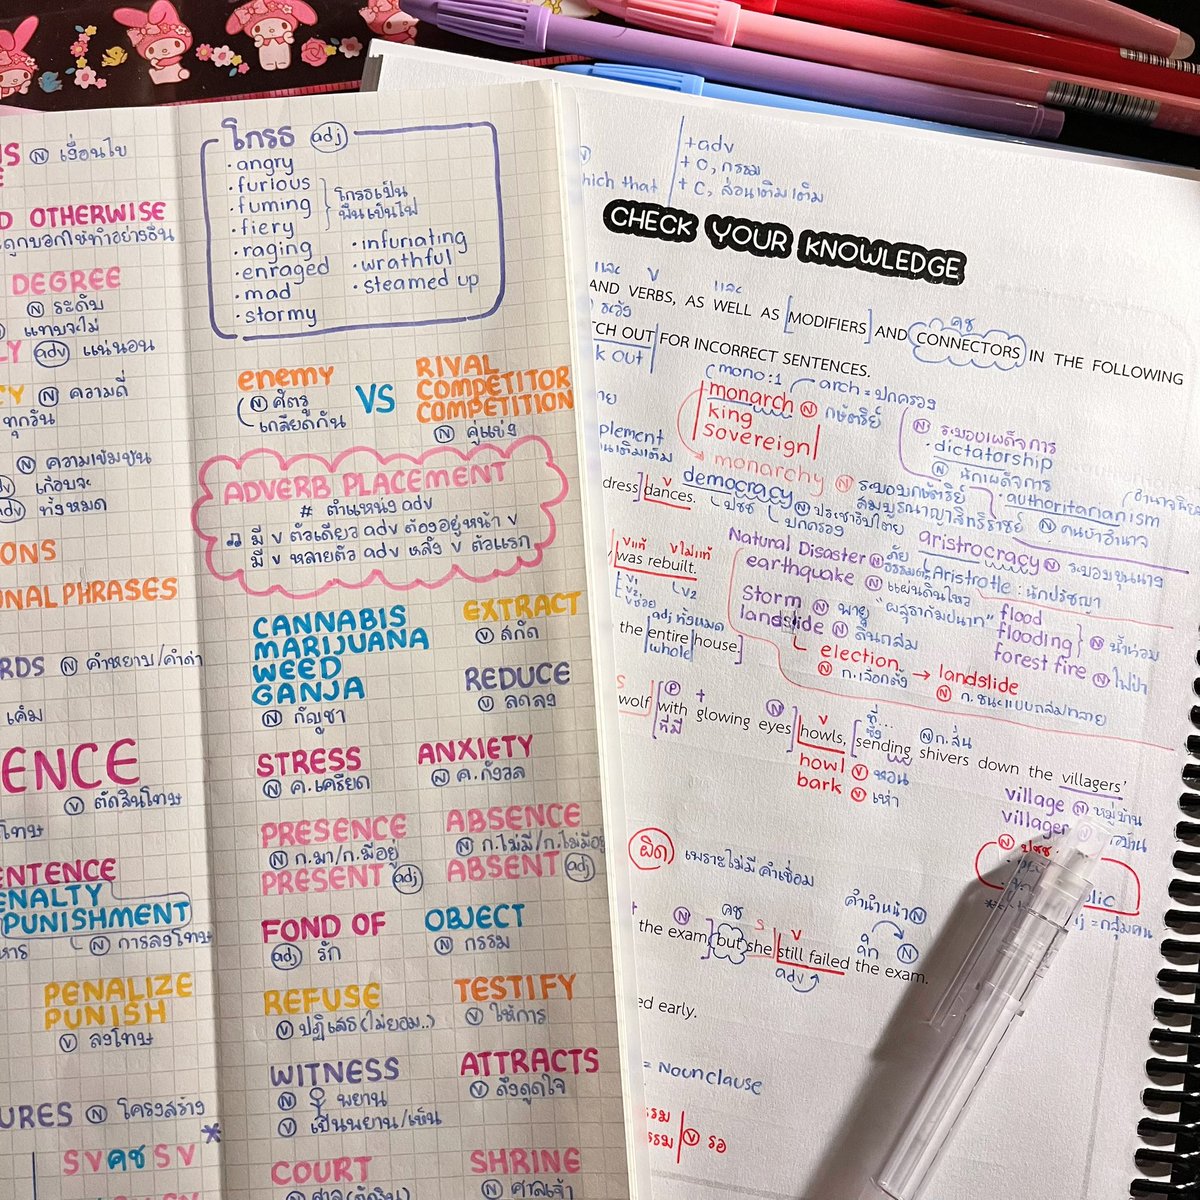 Ⓝ เงื่อนไข
OTHERWISE
ถูกบอกให้ทำอย่างอื่น
DEGREE
Ⓝ ระดับ
แทบจะไม่
LY adv แน่นอน
CY Ⓝ ความถี่
ทุกวัน
Ⓝ ความเข้มข้น
เกือบจะ
adv ทั้งหมด
IONS
ONAL PHRASES
RDS Ⓝ คำหยาบ/คำด่า
เค็ม
ENCE
Ⓥ ตัดสินโทษ
โทษ
ENTENCE
ENALTY
PUNISHMENT
Ⓝ การลงโทษ
PENALIZE
PUNISH
Ⓥ ลงโทษ
URES Ⓝ โครงสร้าง
*
S V คช S V
โกรธ adj
· angry
· furious
· fuming
· fiery
โกรธเป็น
ฟืนเป็นไฟ
· raging
· enraged
· mad
· stormy
· infuriating
· wrathful
· steamed up
enemy
Ⓝ ศัตรู
เกลียดกัน
VS
RIVAL
COMPETITOR
COMPETITION
Ⓝ คู่แข่ง
ADVERB PLACEMENT
# ตำแหน่ง adv
♫ มี v ตัวเดียว adv ต้องอยู่หน้า v
มี v หลายตัว adv หลัง v ตัวแรก
CANNABIS
MARIJUANA
WEED
GANJA
Ⓝ กัญชา
EXTRACT
Ⓥ สกัด
REDUCE
Ⓥ ลดลง
STRESS
Ⓝ ค.เครียด
ANXIETY
Ⓝ ค.กังวล
PRESENCE
Ⓝ ก.มา/ก.มีอยู่
PRESENT adj
ABSENCE
Ⓝ ก.ไม่มี/ก.ไม่มีอยู่
ABSENT adj
FOND OF
adj รัก
OBJECT
Ⓝ กรรม
REFUSE
Ⓥ ปฏิเสธ(ไม่ยอม..)
TESTIFY
Ⓥ ให้การ
WITNESS
Ⓝ พยาน
Ⓥ เป็นพยาน/เห็น
ATTRACTS
Ⓥ ดึงดูดใจ
COURT
Ⓝ ศาล(ตัดสิน)
SHRINE
Ⓝ ศาลเจ้า
+adv
+ O, กรรม
which that
+ C, ส่วนเติมเต็ม
CHECK YOUR KNOWLEDGE
และ v และ
AND VERBS, AS WELL AS [MODIFIERS] AND CONNECTORS IN THE FOLLOWING
คช
ระวัง
TCH OUT FOR INCORRECT SENTENCES.
k out
mono : 1
arch = ปกครอง
monarch Ⓝ กษัตริย์
king
sovereign
monarchy Ⓝ ระบอบกษัตริย์
สมบูรณาญาสิทธิราชย์
Ⓝ ระบอบเผด็จการ
· dictatorship
Ⓝ นักเผด็จการ
· authoritarianism
Ⓝ คนบ้าอำนาจ
plement
dress] dances.
democracy Ⓝ ประชาธิปไตย
ปชช
ปกครอง
aristrocracy Ⓝ ระบอบขุนนาง
Aristrotle : นักปรัชญา
vแท้ vไม่แท้
was rebuilt.
v1
v2
vช่วย
v2
Natural Disaster Ⓝ ภัยธรรมชาติ
earthquake Ⓝ แผ่นดินไหว
storm Ⓝ พายุ
landslide Ⓝ ดินถล่ม
flood
flooding Ⓝ น้ำท่วม
forest fire Ⓝ ไฟป่า
adj ทั้งหมด
the entire house.]
whole
election → landslide
Ⓝ ก.เลือกตั้ง
Ⓝ ก.ชนะแบบถล่มทลาย
S Ⓟ + Ⓝ v ที่... ซึ่ง Ⓝ ก.สั่น
wolf [with glowing eyes] howls, [sending shivers down the villagers'
ที่มี
howl Ⓥ หอน
bark Ⓥ เห่า
village Ⓝ หมู่บ้าน
villager
Ⓝ ปชช
ผิด เพราะไม่มีคำเชื่อม
คำนำหน้า Ⓝ
Ⓝ คช S v
the exam,] but she still failed the exam.
adv
ed early.
lic
= กลุ่มคน
= Noun clause
กรรม
กรรม Ⓥ รอ